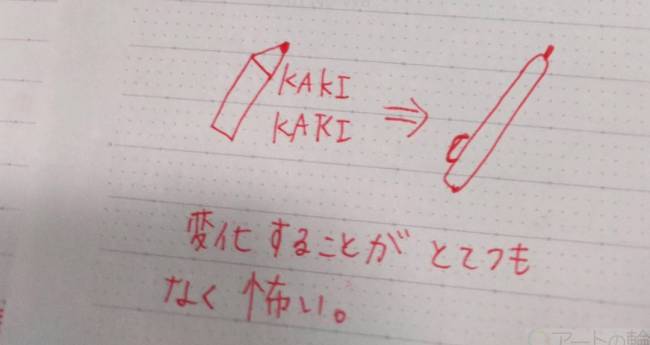 KAKI
KAKI
変化することがとてつも
なく怖い。
アートの輪